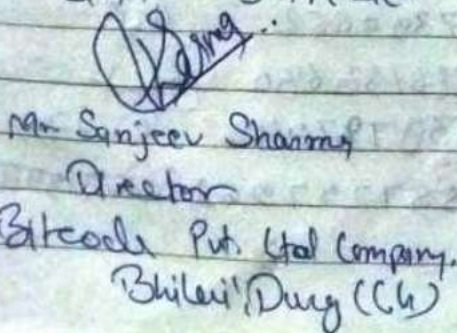 Mr Sanjeev Sharma
Director
Bitcode Pvt. Ltd Company.
Bhilai, Durg (CG)